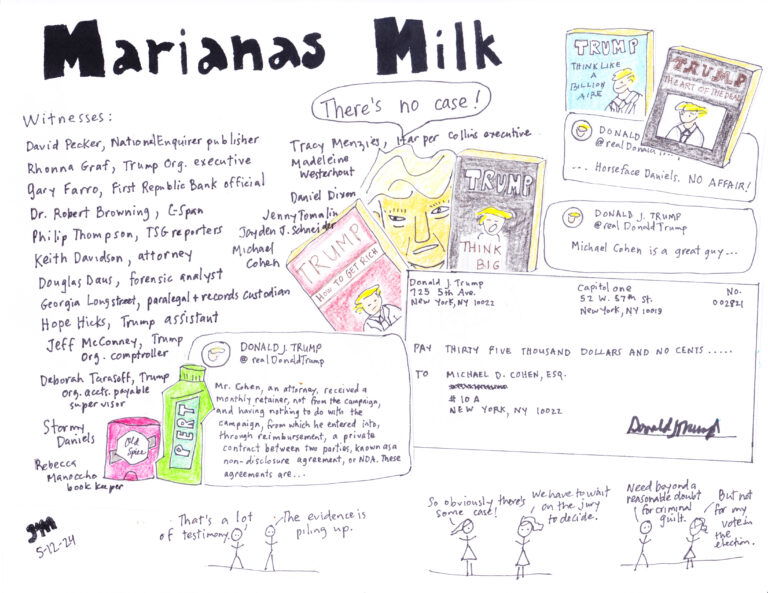 Marianas Milk
Witnesses:
David Pecker, National Enquirer publisher
Rhonna Graf, Trump Org. executive
Gary Farro, First Republic Bank official
Dr. Robert Browning, C-Span
Philip Thompson, TSG reporters
Keith Davidson, attorney
Douglas Daus, forensic analyst
Georgia Longstreet, paralegal + records custodian
Hope Hicks, Trump assistant
Jeff McConney, Trump
Org. comptroller
Deborah Tarasoff, Trump
Org. accts. payable
supervisor
Stormy
Daniels
Rebecca
Manoccho
book keeper
There's no case!
Tracy Menzies, Harper Collins executive
Madeleine
Westerhout
Daniel Dixon
Jenny Tomalin
Jayden J. Schneider
Michael
Cohen
TRUMP
HOW TO GET RICH
TRUMP
THINK
BIG
TRUMP
THINK LIKE
A
BILLION
AIRE
TRUMP
THE ART OF THE DEAL
DONALD
@realDona
... Horseface Daniels. NO AFFAIR!
DONALD J. TRUMP
@realDonalTrump
Michael Cohen is a great guy...
Donald J. Trump
725 5th Ave.
New York, NY 10022
Capitol one
52 W. 57th St.
New York, NY 10019
NO.
002821
PAY THIRTY FIVE THOUSAND DOLLARS AND NO CENTS .....
TO MICHAEL D. COHEN, ESQ.
# 10 A
NEW YORK, NY 10022
Donald J Trump
DONALD J. TRUMP
@realDonaldTrump
Mr. Cohen, an attorney, received a
monthly retainer, not from the campaign,
and having nothing to do with the
campaign, from which he entered into,
through reimbursement, a private
contract between two parties, known as a
non-disclosure agreement, or NDA. These
agreements are...
Old
Spice
PERT
JM
5-12-24
That's a lot
of testimony.
The evidence is
piling up.
So obviously there's
some case!
We have to wait
on the jury
to decide.
Need beyond a
reasonable doubt
for criminal
guilt.
But not
for my
vote in
the
election.